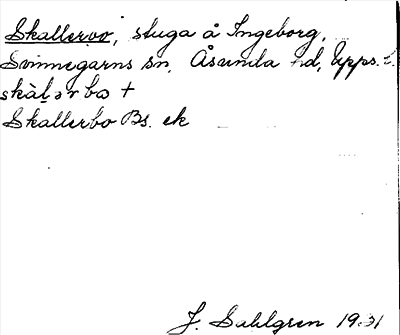 Skallerbo, stuga å Ingeborg,
Svinnegarns sn, Åsunda hd, Upps. l.
skàlər bω +
Skallerbo Bs. ek
J. Sahlgren 1931